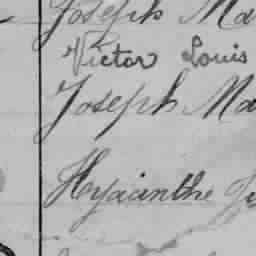 Joseph Ma
Victor Louis
Joseph Ma
Hyacinthe